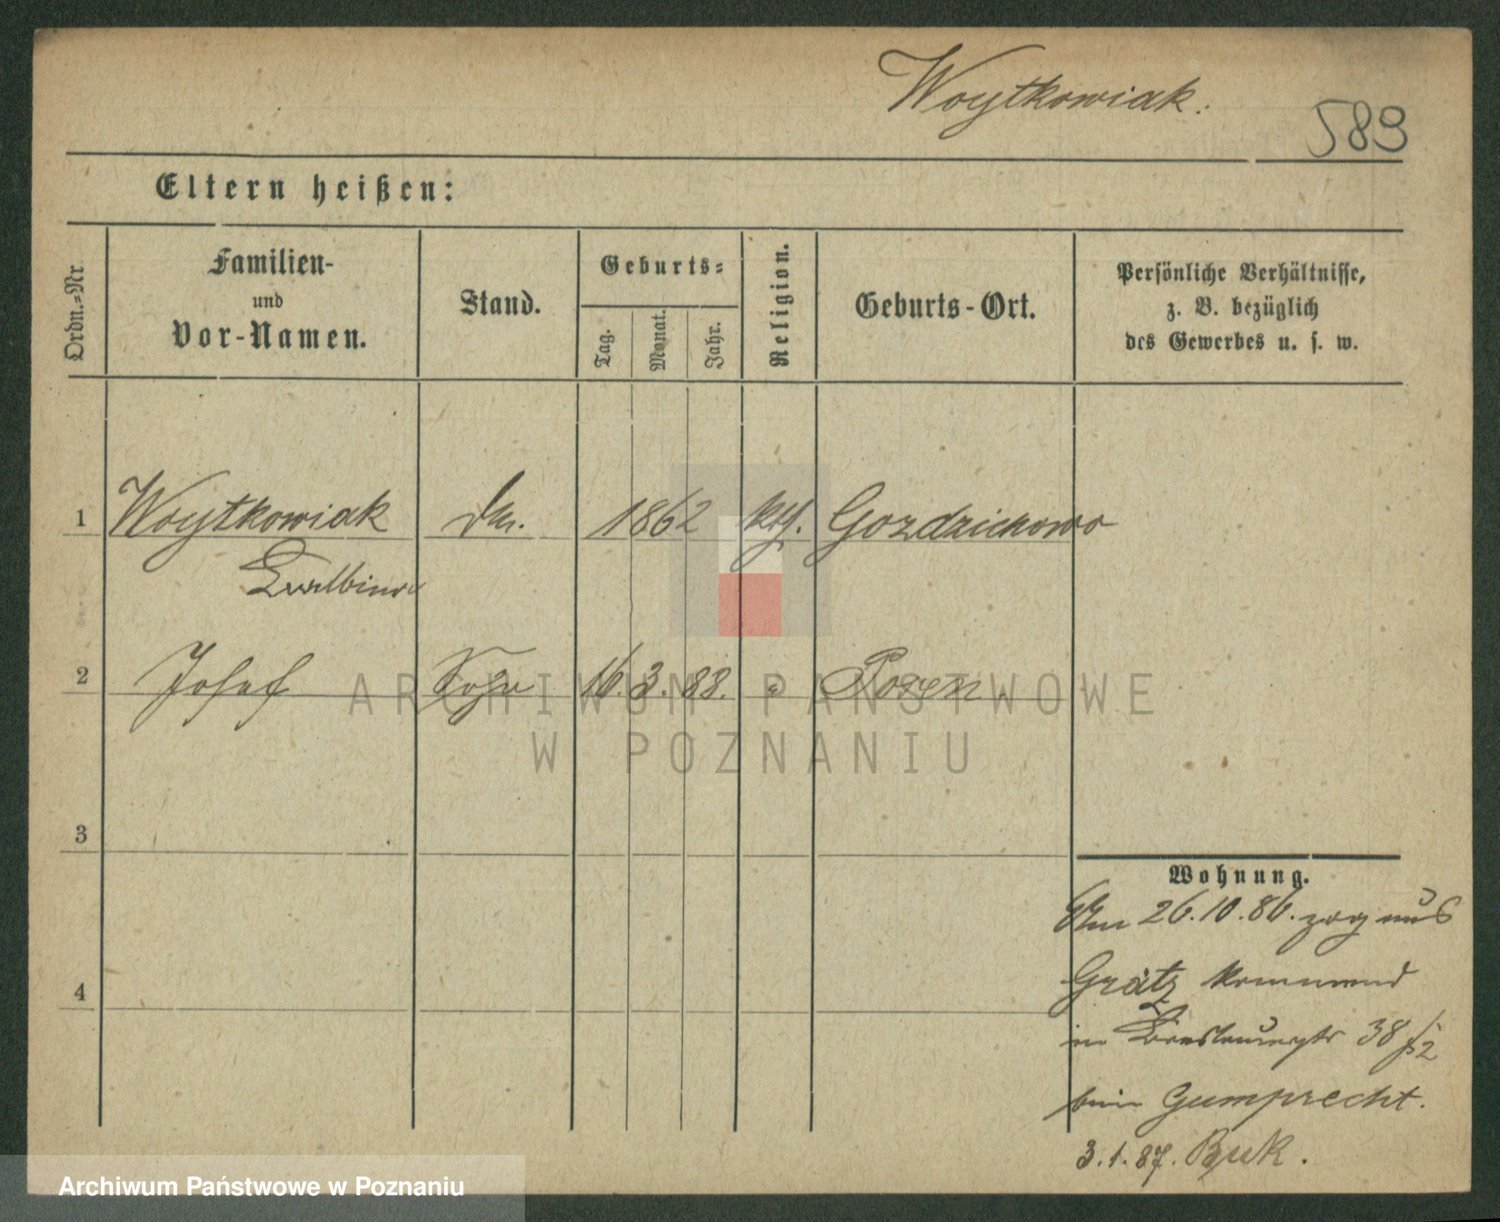 Woytkowiak.
589
Eltern heißen:
Ordn.=Nr.
Familien-
und
Vor-Namen.
Stand.
Geburts=
Tag.
Monat.
Jahr.
Religion.
Geburts-Ort.
Persönliche Verhältnisse,
z. B. bezüglich
des Gewerbes u. s. w.
1 Woytkowiak 1862 kth. Gozdzichowo
2 Josef Sohn 16. 3. 88. " Posen
ARCHIWUM PAŃSTWOWE
W POZNANIU
3
4
Wohnung.
Am 26.10.86. zog aus
Grätz kommend
in Breslauerstr 38
beim Gumprecht.
3.1.87. Buk.
Archiwum Państwowe w Poznaniu